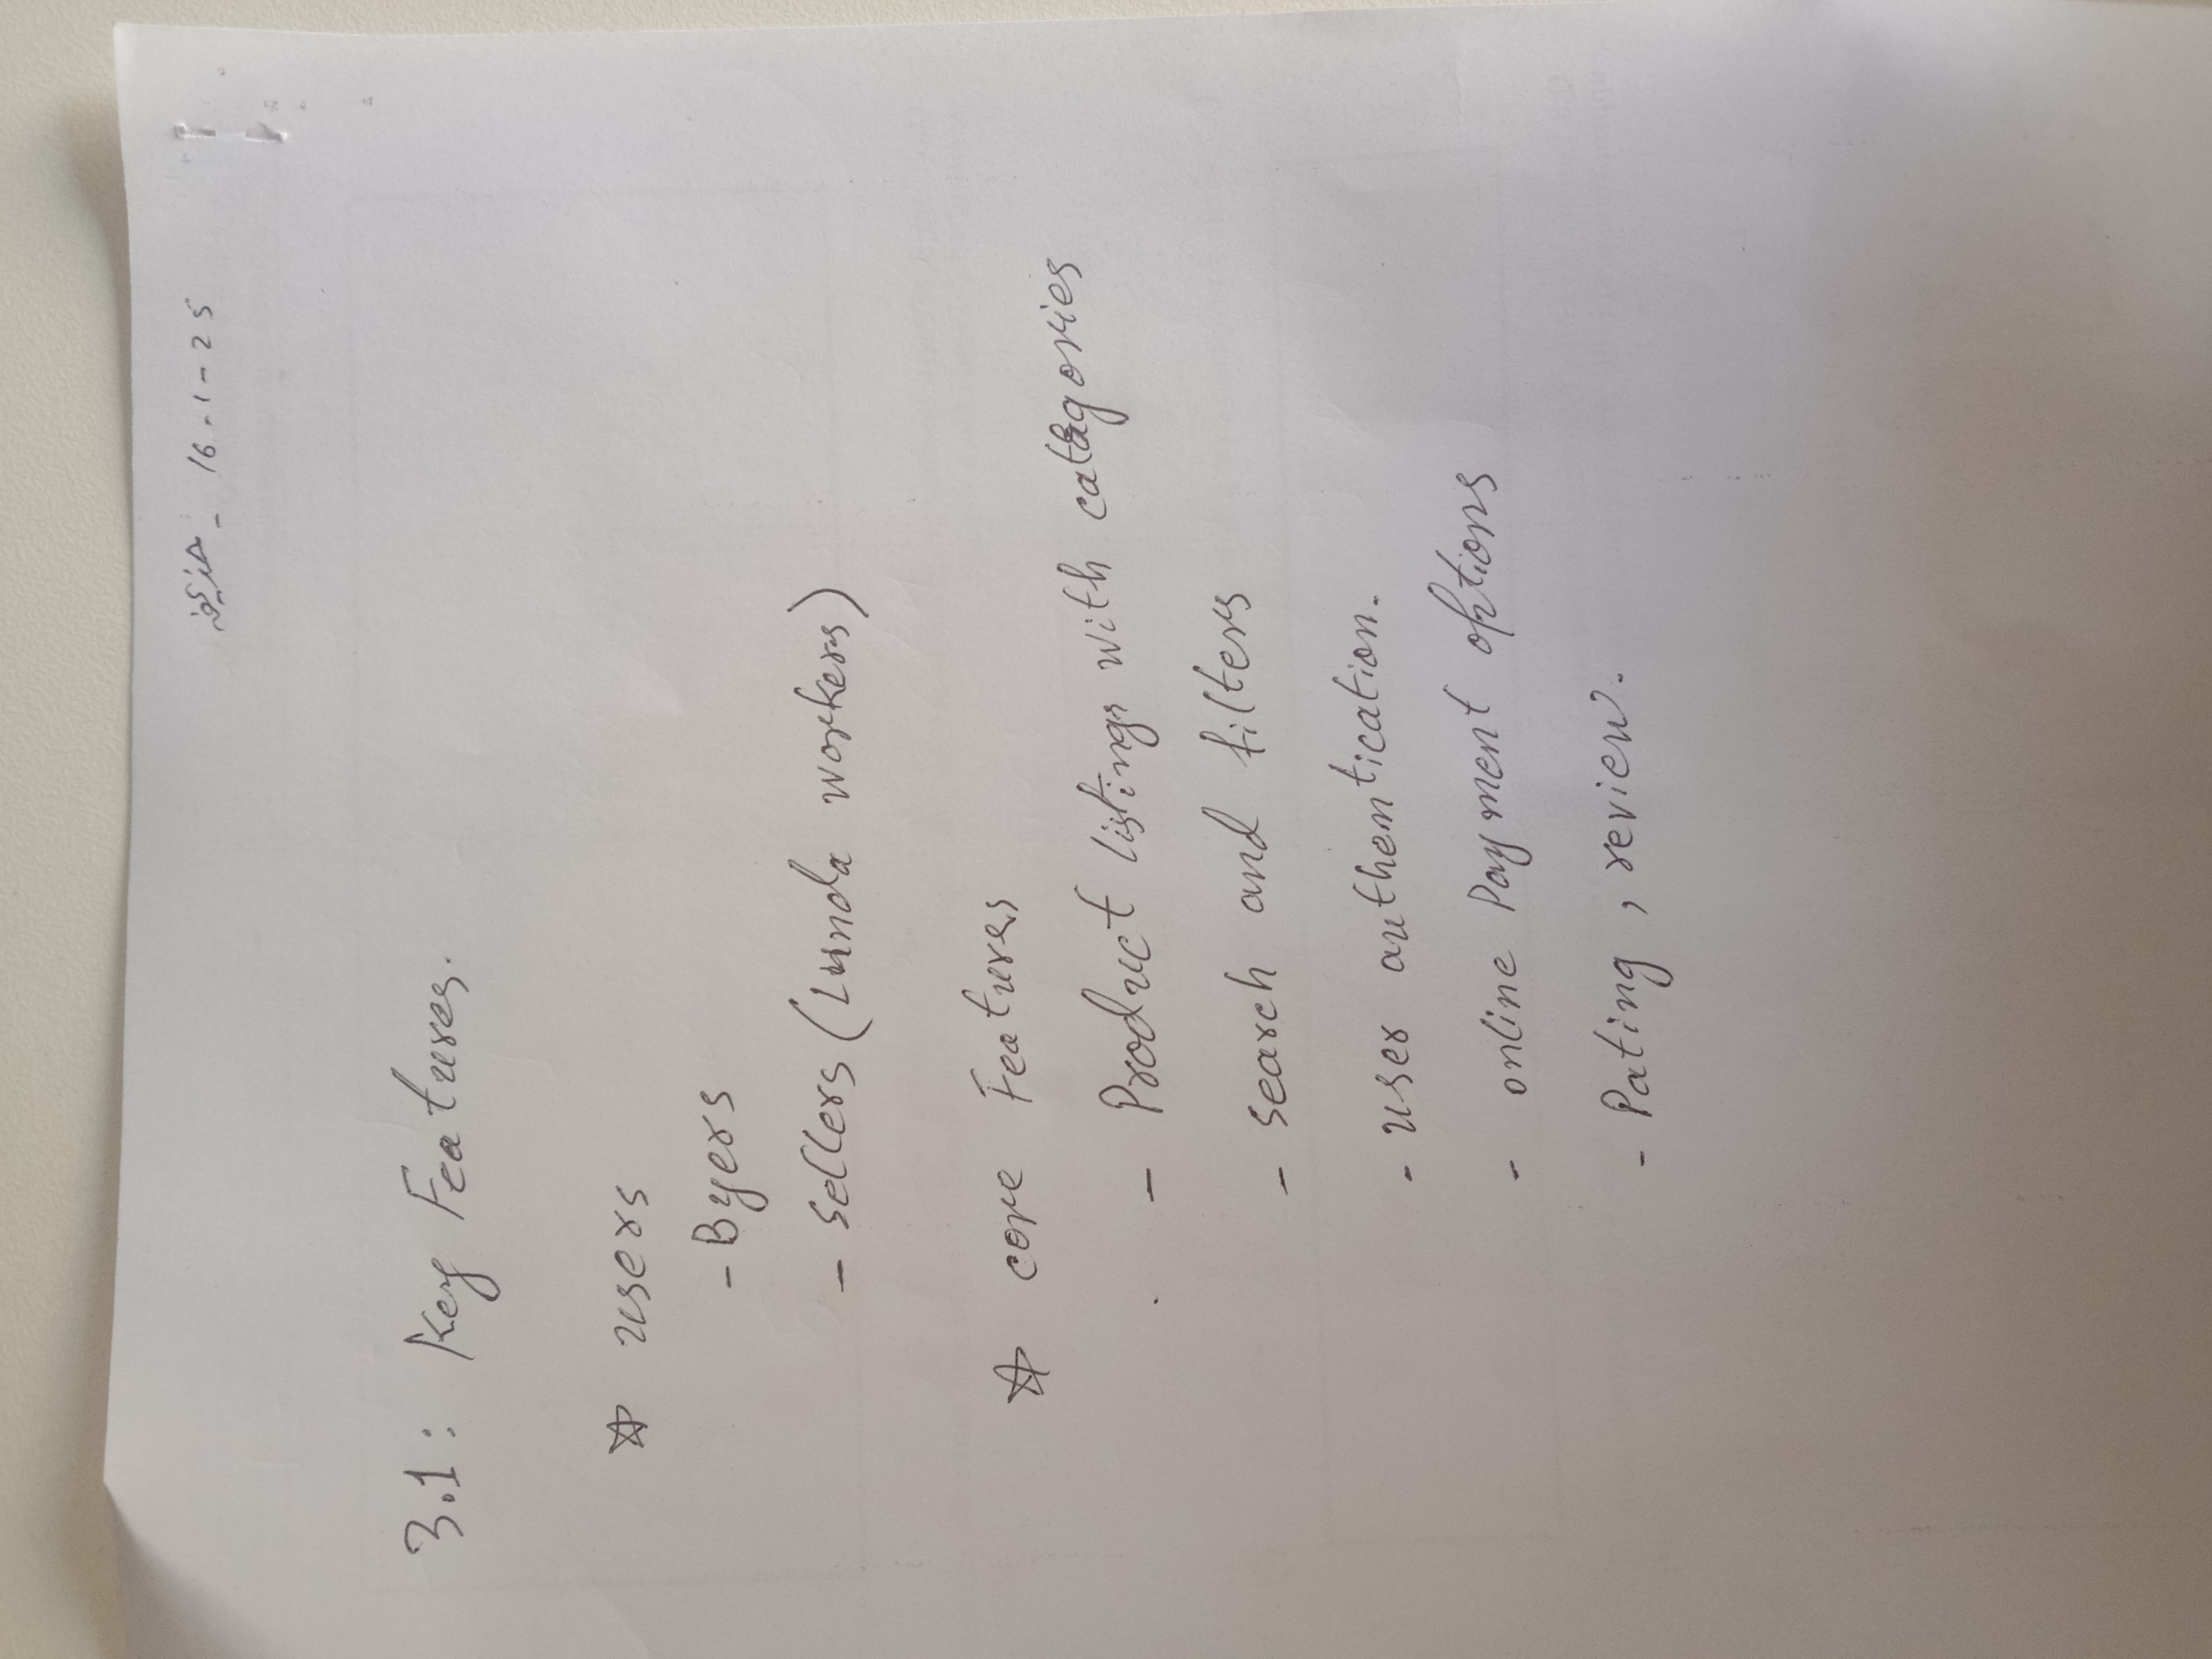 16-1-25
3.1: Key Features.
☆ users
- Byers
- sellers (Lunda workers)
☆ core Features
- Product listings with catagories
- search and filters
- user authentication.
- online Payment options
- Rating, review.